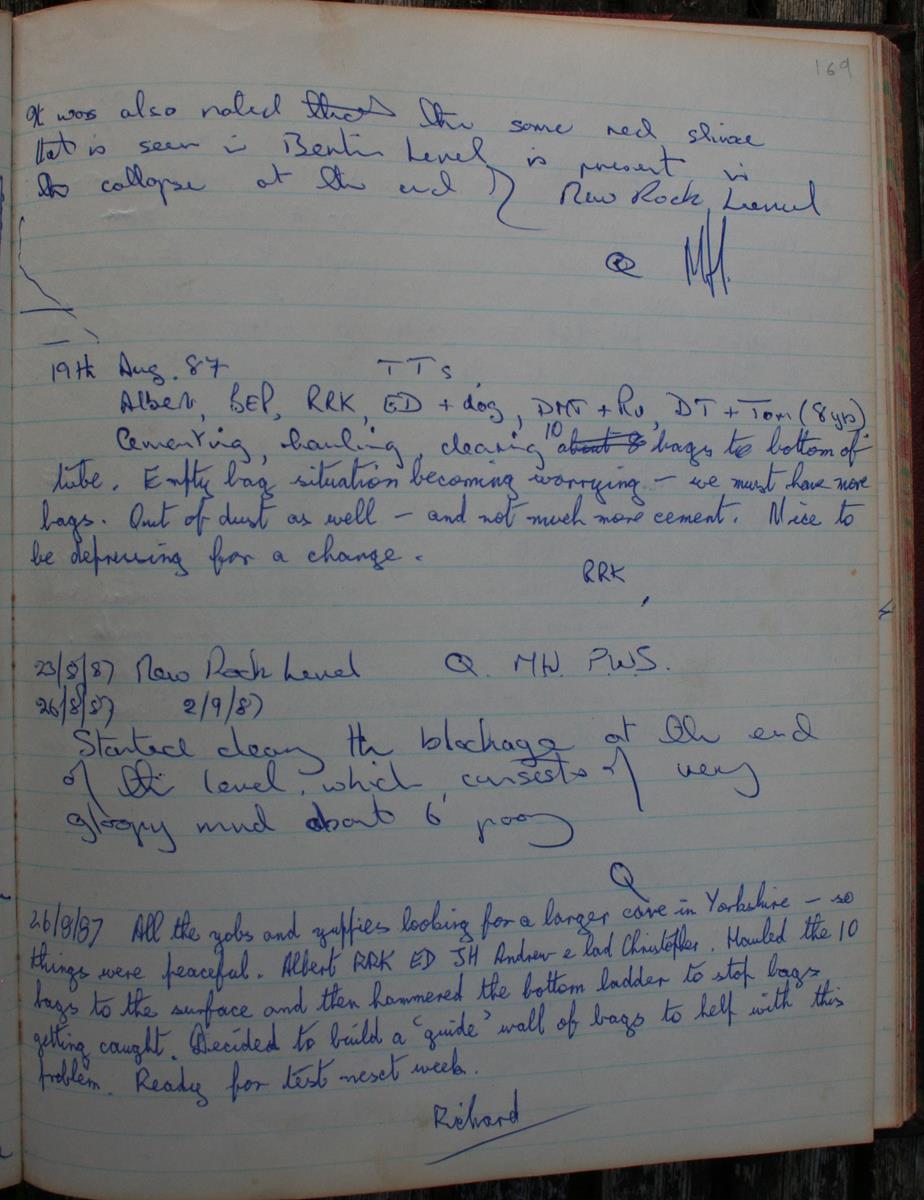 169
It was also noted that the same red shivae
that is seen in Bentin Level is present in
the collapse at the end } New Rock Level
Q MH.
19th Aug. 87 TTs.
Albert, BEP, RRK, ED + dog, DMT + Ru, DT + Tom (8 yrs)
Cementing, hauling, clearing 10 about 8 bags to bottom of
tube. Empty bag situation becoming worrying - we must have more
bags. Out of dust as well - and not much more cement. Nice to
be depressing for a change.
RRK
23/8/87 New Rock Level Q. MH. P.W.S.
26/8/87 2/9/87
Started cleang the blockage at the end
of the level, which consists of very
gloopy mud about 6'
Q
26/8/87 All the yobs and yuppies looking for a larger cave in Yorkshire - so
things were peaceful. Albert RRK ED JH Andrew e lad Christopher. Hauled the 10
bags to the surface and then hammered the bottom ladder to stop bags
getting caught. Decided to build a 'guide' wall of bags to help with this
problem. Ready for test next week.
Richard